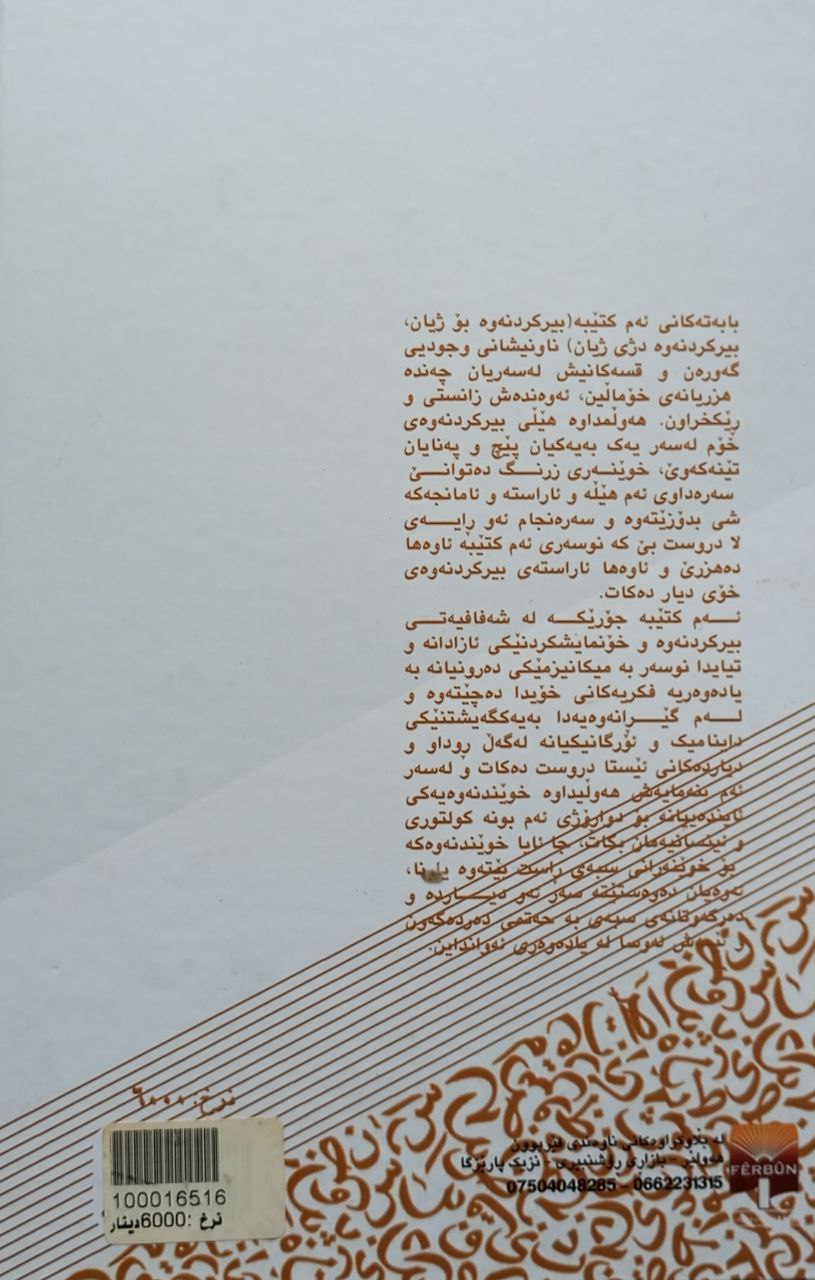 بابەتەکانی ئەم کتێبە(بیرکردنەوە بۆ ژیان،
بیرکردنەوە دژی ژیان) ناونیشانی وجودیی
گەورەن و قسەکانیش لەسەریان چەندە
هزریانەی خۆماڵین، ئەوەندەش زانستی و
ڕێکخراون. هەوڵمداوە هێڵی بیرکردنەوەی
خۆم لەسەر یەک بەیەکیان پێچ و پەنایان
تێنەکەوێ، خوێنەری زرنگ دەتوانێ
سەرەداوی ئەم هێڵە و ئاراستە و ئامانجەکە
شی بدۆزێتەوە و سەرەنجام ئەو ڕایەی
لا دروست بێ کە نوسەری ئەم کتێبە ئاوەها
دەهزرێ و ئاوەها ئاراستەی بیرکردنەوەی
خۆی دیار دەکات.
ئەم کتێبە جۆرێکە لە شەفافیەتی
بیرکردنەوە و خۆنمایشکردنێکی ئازادانە و
تیایدا نوسەر بە میکانیزمێکی دەرونیانە بە
یادەوەریە فکریەکانی خۆیدا دەچێتەوە و
لەم گێڕانەوەیەدا بەیەکگەیشتنێکی
داینامیک و ئۆرگانیکیانە لەگەڵ روداو و
دیاردەکانی ئێستا دروست دەکات و لەسەر
ئەم بنەمایەش هەوڵیداوە خوێندنەوەیەکی
ئایندەییانە بۆ دوارۆژی ئەم بونە کولتوری
و ئینسانیەمان بکات، جا ئایا خوێندنەوەکە
بۆ خوێنەرانی سبەی ڕاست بێتەوە یا نا،
ئەوەیان دەوەستێتە سەر ئەو دیاردە و
دەرکەوتانەی سبەی بە حەتمی دەردەکەون
و ئێمەش ئەوسا لە یادەوەری ئەوانداین.
نرخ: ٦٠٠٠
100016516
نرخ :6000دینار
لە بڵاوکراوەکانی ناوەندی فێربوون
هەولێر - بازاڕی ڕۆشنبیری - نزیک پارێزگا
07504048285 - 0662231315
FÊRBÛN